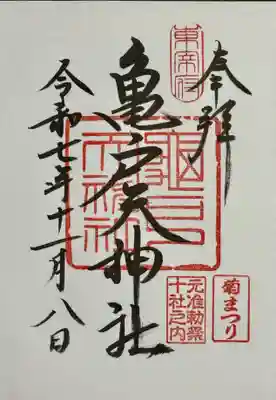 奉拝
菊まつり
東宰府
亀戸天神社
元准勅祭
十社之内
令和七年十一月八日